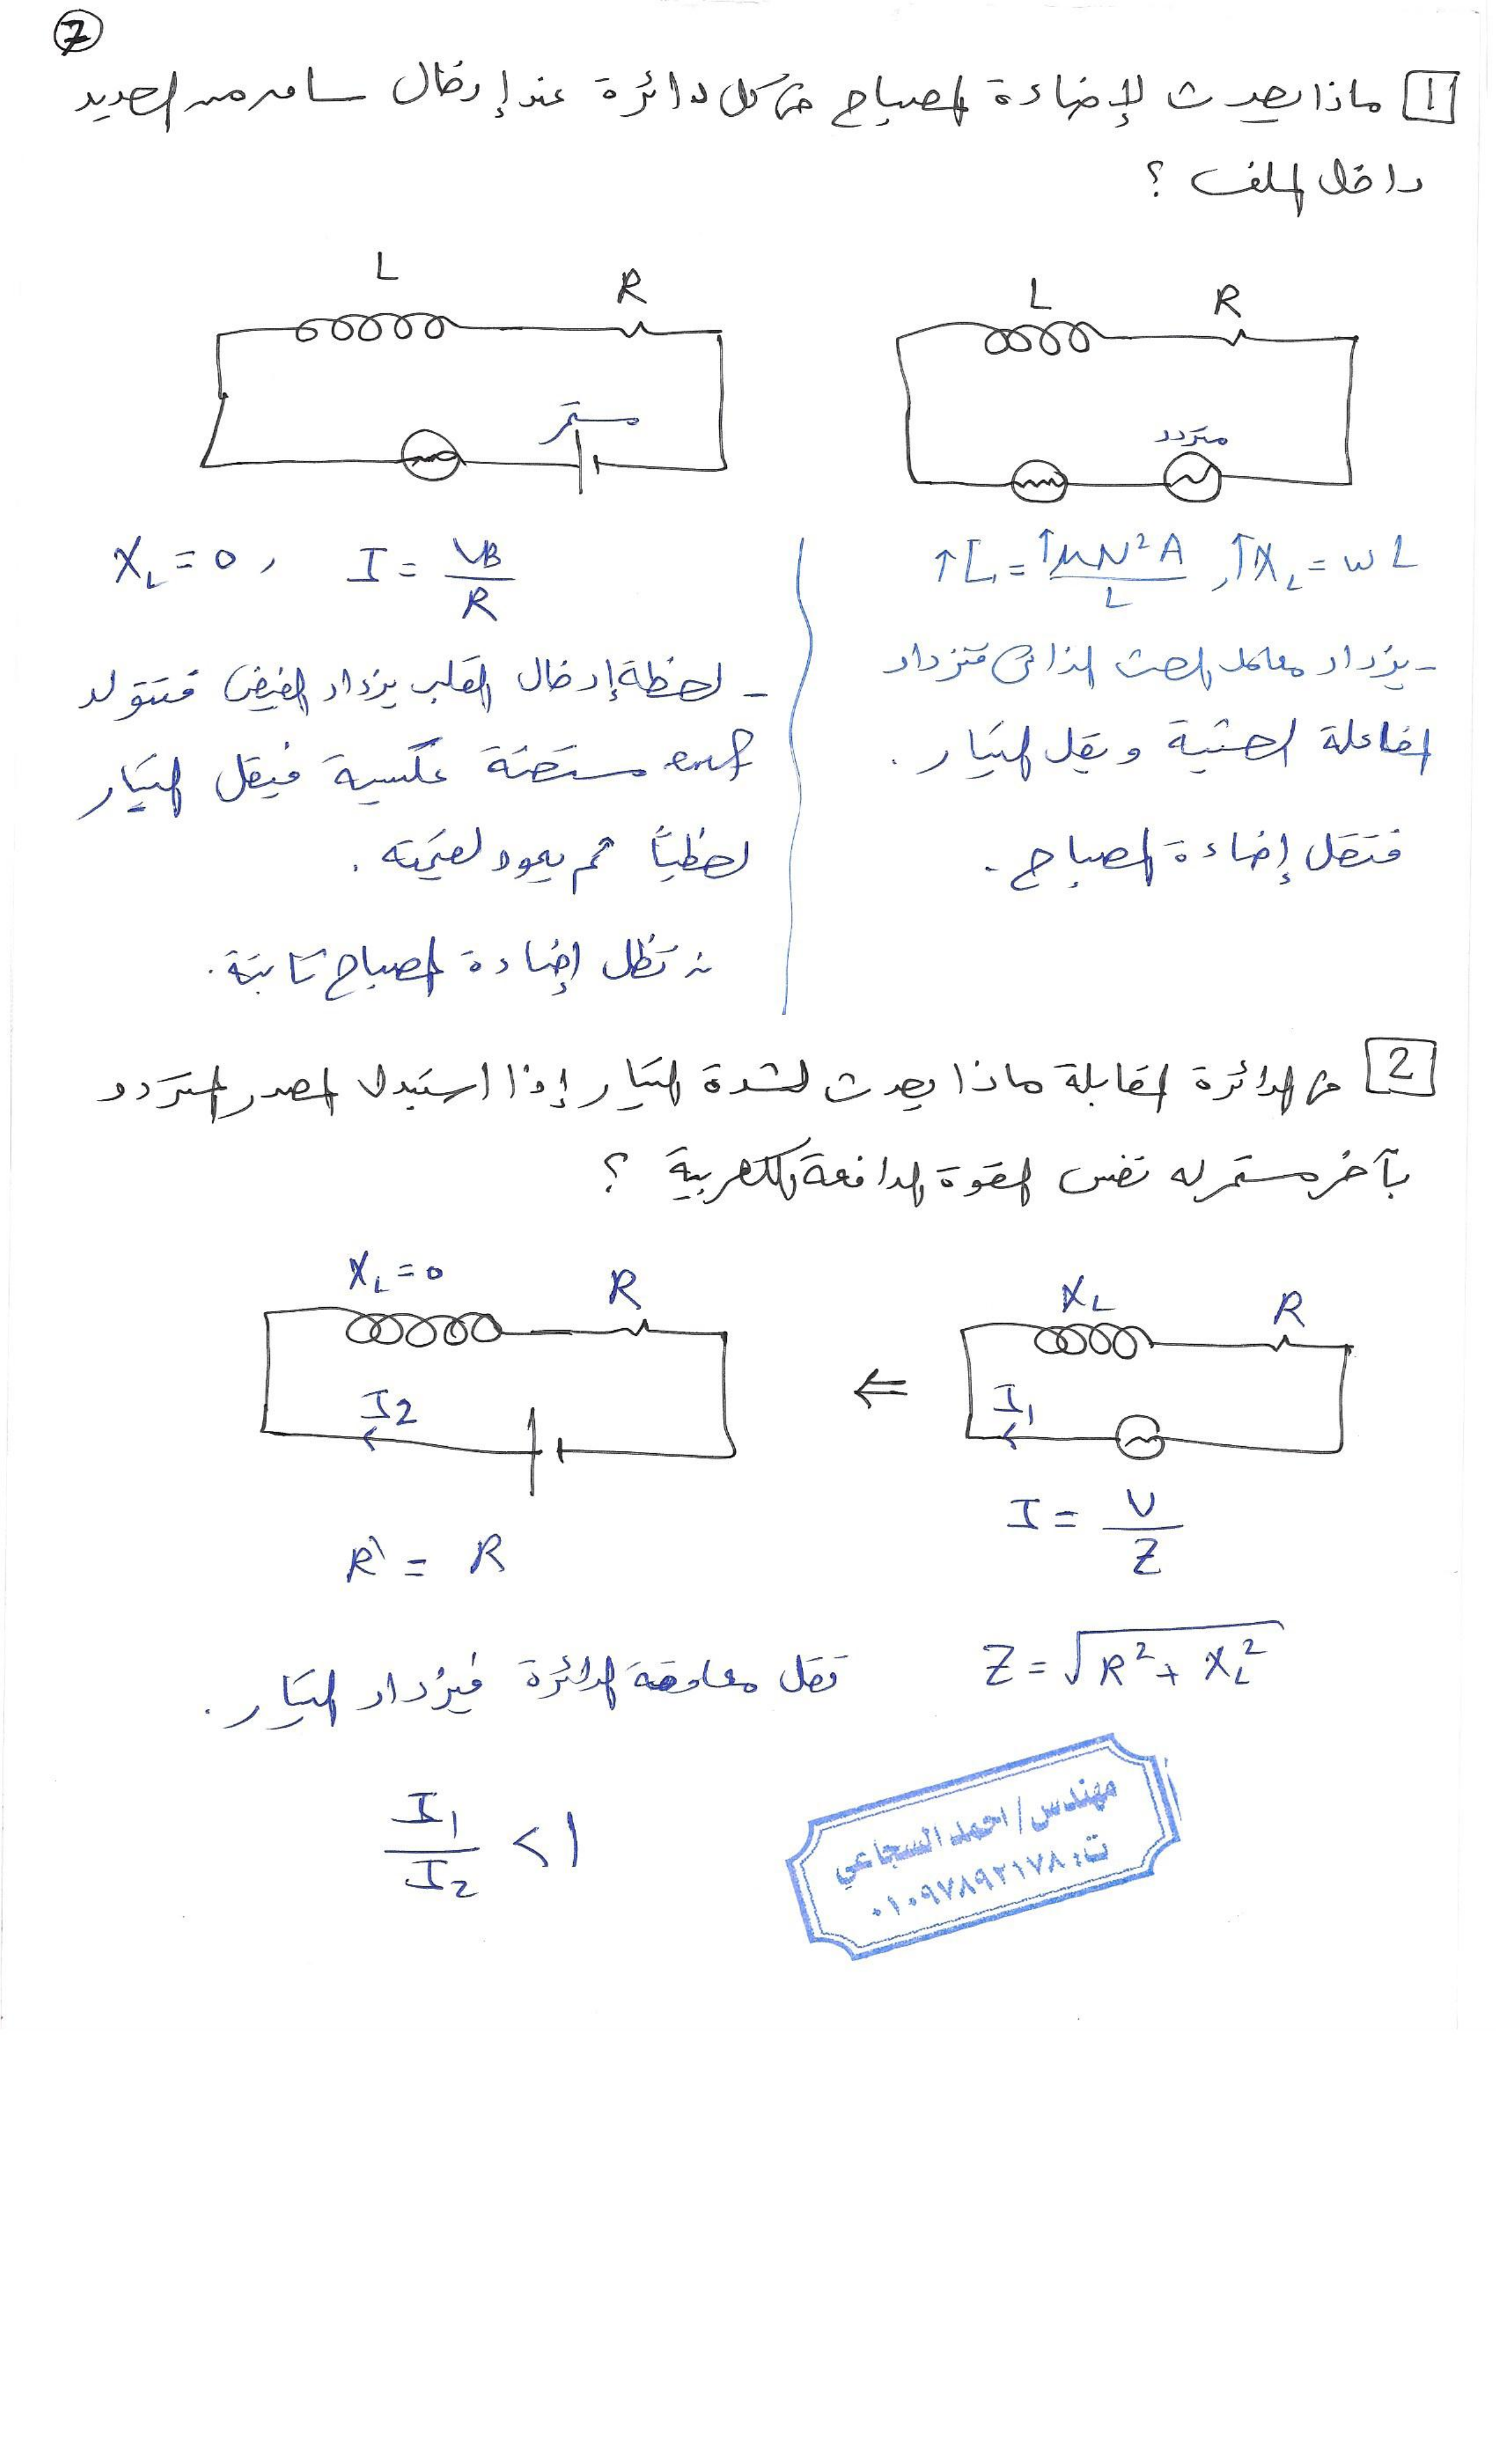 7
1 ماذا يحدث لإضاءة المصباح في كل دائرة عند إدخال ساق من الحديد
داخل الملف ؟
L R
L R
متردد
مستمر
↑L = ↑μN²A / L , ↑X_L = ωL
- يزداد معامل الحث الذاتى فتزداد
المفاعلة الحثية ويقل التيار .
فتقل إضاءة المصباح .
X_L = 0 , I = V_B / R
- لحظة إدخال القلب يزداد الفيض فتتولد
emf مستحثة عكسية فيقل التيار
لحظياً ثم يعود لقيمته .
∴ تظل إضاءة المصباح ثابتة .
2 في الدائرة المقابلة ماذا يحدث لشدة التيار إذا استبدل المصدر المتردد
بآخر مستمر له نفس القوة الدافعة الكهربية ؟
X_L R
I₁
⇐
X_L = 0 R
I₂
I = V / Z
R\ = R
Z = √R² + X_L²
تقل معاوقة الدائرة فيزداد التيار .
I₁ / I₂ < 1
مهندس/احمد السجاعي
ت: ٠١٠٩٧٨٩٢١٧٨